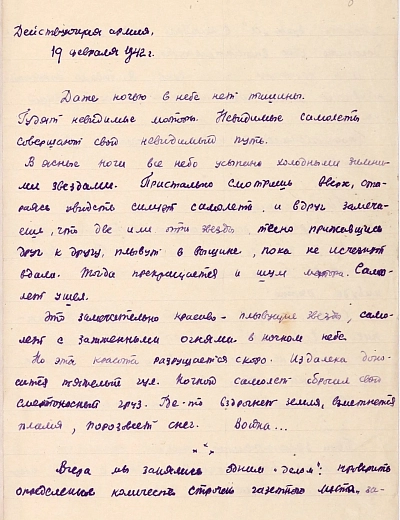 Действующая армия,
19 февраля 1942 г.
Даже ночью в небе нет тишины.
Гудят невидимые моторы. Невидимые самолеты
совершают свой невидимый путь.
В ясные ночи все небо усыпано холодными зимни-
ми звездами. Пристально смотришь вверх, ста-
раясь увидеть силуэт самолета, и вдруг замеча-
ешь, что две или три звезды, тесно прижавшись
друг к другу, плывут в вышине, пока не исчезнут
вдали. Тогда прекращается и шум мотора. Само-
лет ушел.
Это замечательно красиво - плывущие звезды, само-
лет с зажженными огнями в ночном небе.
Но эта красота разрушается скоро. Издалека доно-
сится тяжелый гул. Ночной самолет сбросил свой
смертоносный груз. Где-то вздрогнет земля, взметнется
пламя, порозовеет снег. Война...
* * *
Вчера мы занялись одним "делом": проверить
определенные количества строчек газетного текста, за-